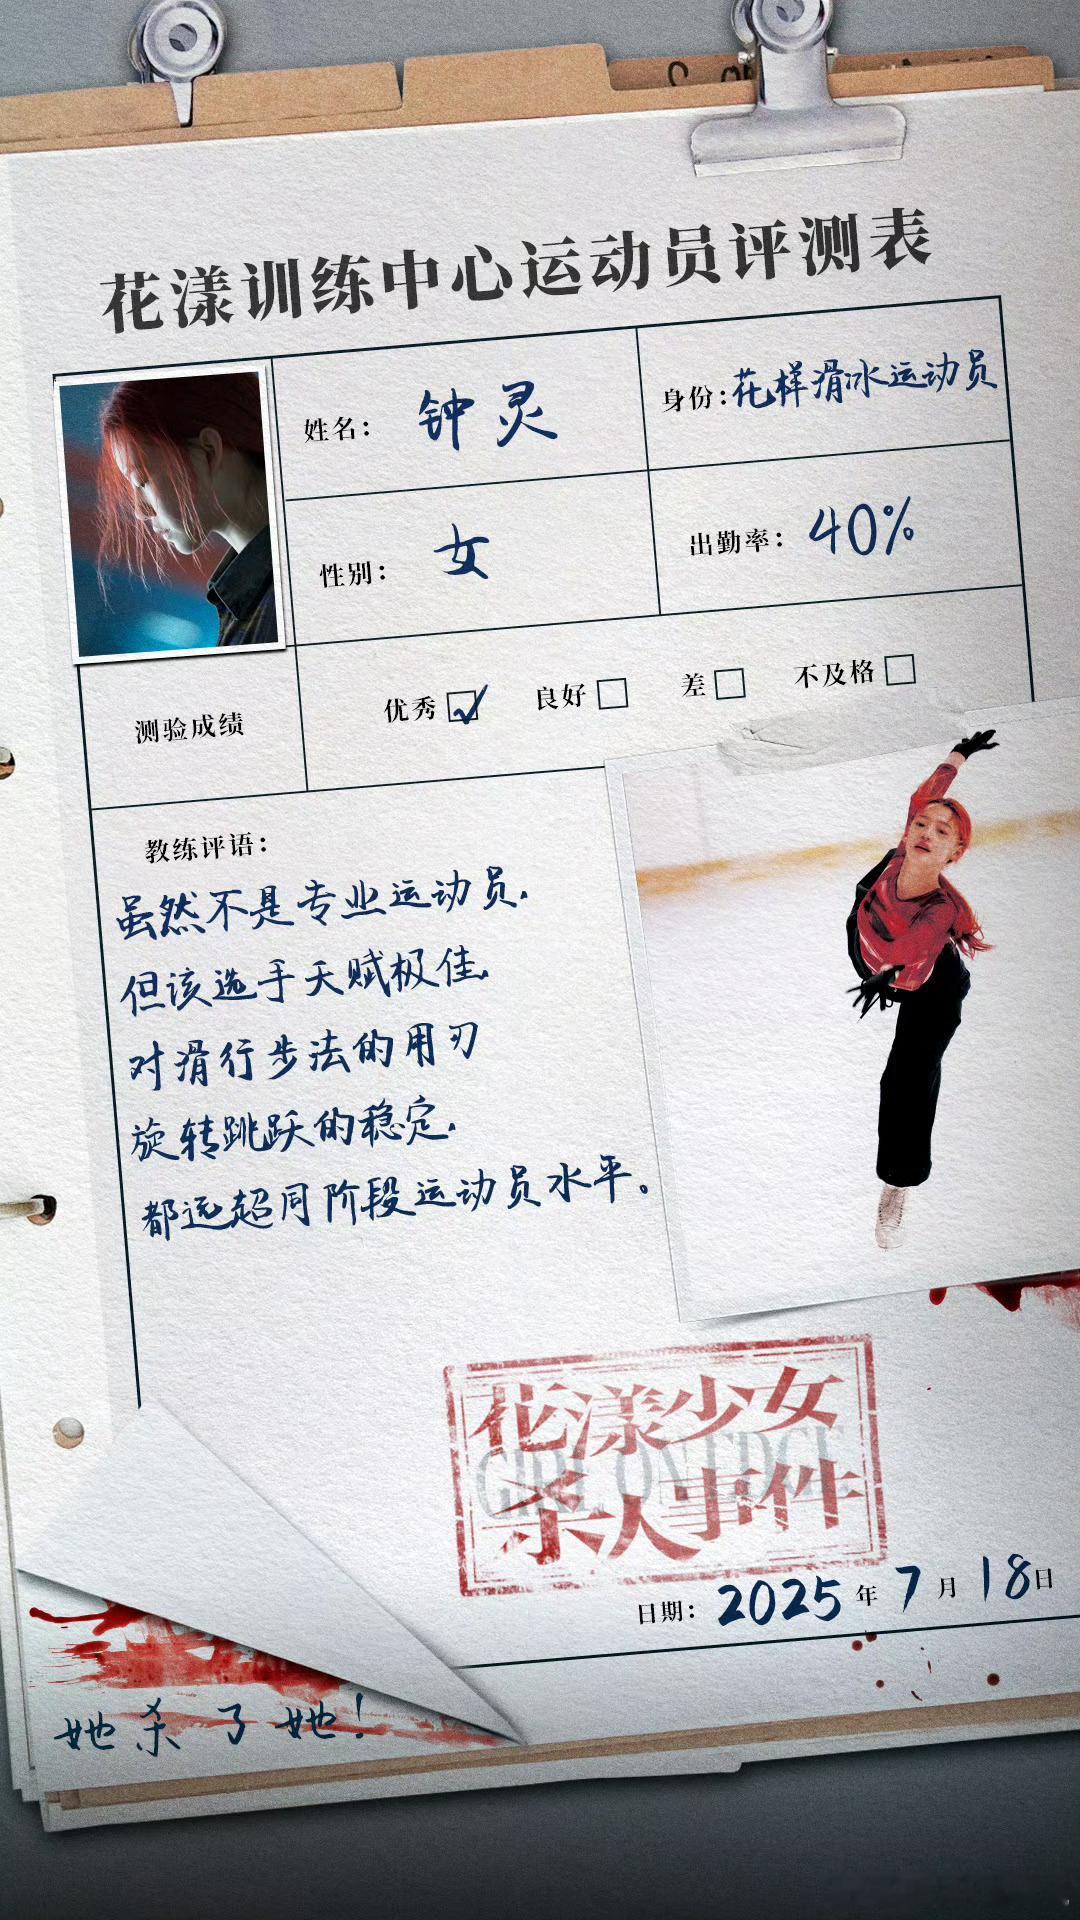 花漾训练中心运动员评测表
姓名: 钟灵
身份:花样滑冰运动员
性别: 女
出勤率: 40%
测验成绩
优秀 ✓ 良好 □ 差 □ 不及格 □
教练评语:
虽然不是专业运动员.
但该选手天赋极佳.
对滑行步法的用刃
旋转跳跃的稳定.
都远超同阶段运动员水平。
花漾少女
GIRL ON EDGE
杀人事件
日期: 2025年7月18日
她杀了她!